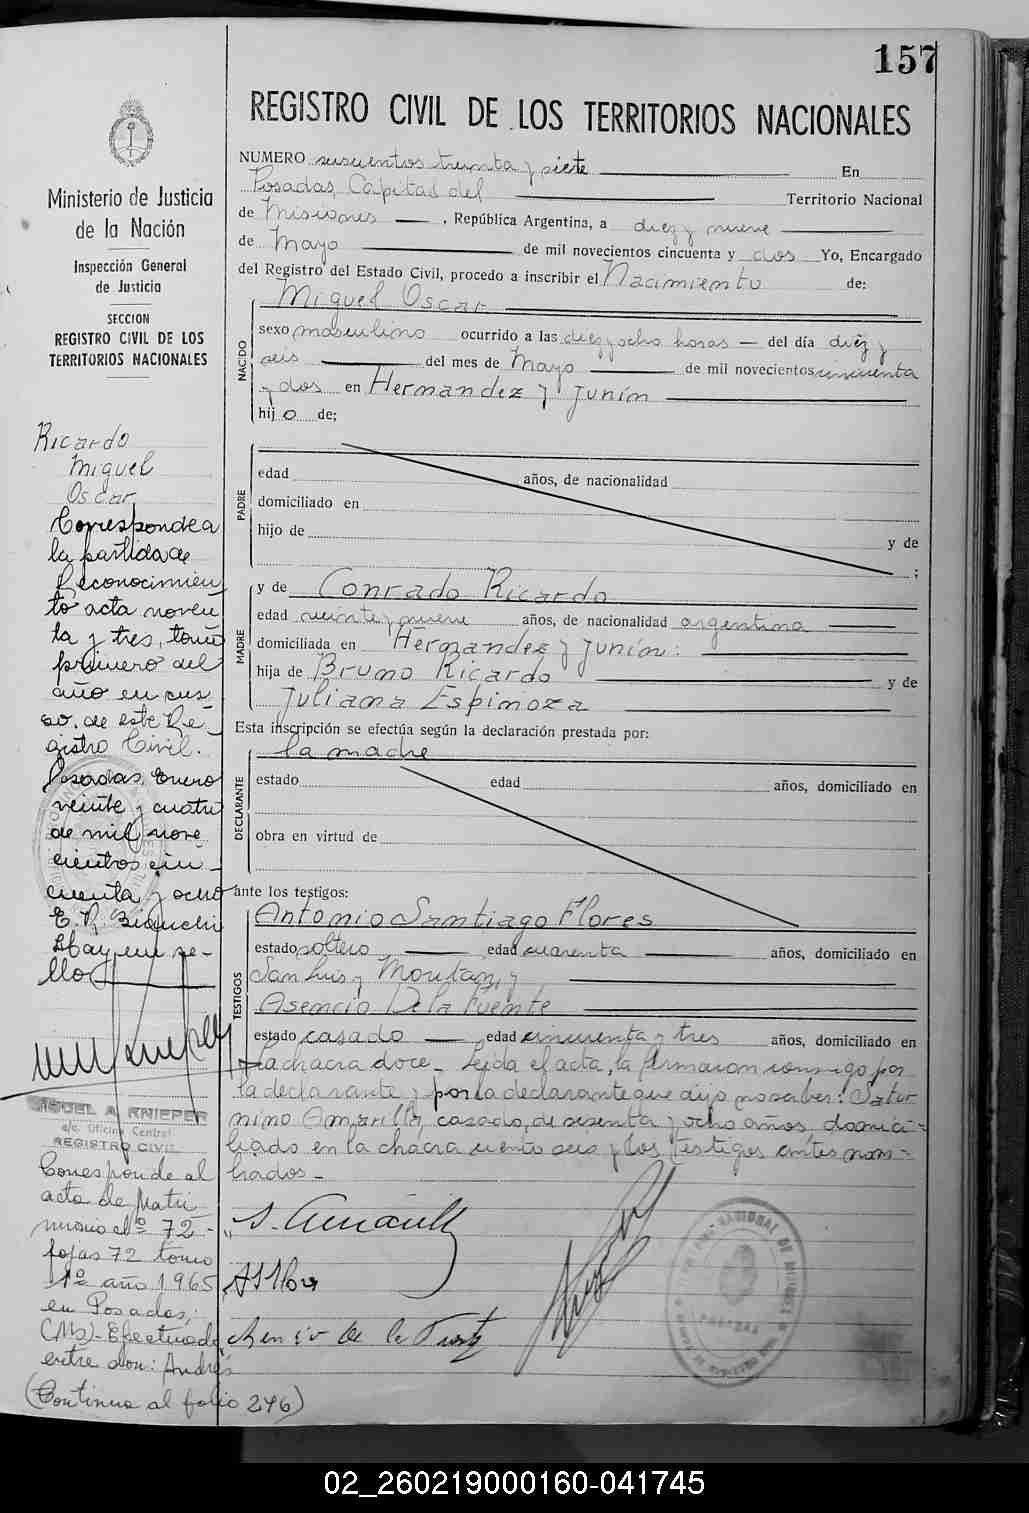 157
REGISTRO CIVIL DE LOS TERRITORIOS NACIONALES
Ministerio de Justicia
de la Nación
Inspección General
de Justicia
SECCION
REGISTRO CIVIL DE LOS
TERRITORIOS NACIONALES
Ricardo
Miguel
Oscar
Corresponde a
la partida de
Reconocimien
to acta noven
ta y tres, tomo
primero del
año en cur
so, de este Re-
gistro Civil.
Posadas, Enero
veinte y cuatro
de mil nove
cientos cin-
cuenta y ocho
E. R. Bianchi
Hay un se-
llo
MIGUEL A. KNIEPER
a/c. Oficina Central
REGISTRO CIVIL
Corresponde al
acta de Matri
monio nº 72-
fojas 72 tomo
1º año 1965
en Posadas,
(Ms)- Efectuado
entre don: Andrés
(Continua al folio 246)
NUMERO seiscientos treinta y siete En
Posadas, Capital del Territorio Nacional
de Misiones, República Argentina, a diez y nueve
de Mayo de mil novecientos cincuenta y dos Yo, Encargado
del Registro del Estado Civil, procedo a inscribir el Nacimiento de:
NACIDO
Miguel Oscar
sexo masculino ocurrido a las diez y ocho horas — del día diéz y
seis del mes de Mayo de mil novecientos cincuenta
y dos en Hernandez y Junín
hijo de;
PADRE
edad años, de nacionalidad
domiciliado en
hijo de y de
;
MADRE
y de Conrado Ricardo
edad veinte y nueve años, de nacionalidad argentina
domiciliada en Hernandez y Junín:
hija de Bruno Ricardo y de
Juliana Espinoza
Esta inscripción se efectúa según la declaración prestada por:
DECLARANTE
la madre
estado edad años, domiciliado en
obra en virtud de
ante los testigos:
TESTIGOS
Antonio Santiago Flores
estado soltero edad cuarenta años, domiciliado en
San Luis y Moritan, y
Asencio De la Fuente
estado casado edad cincuenta y tres años, domiciliado en
la chacra doce- Leída el acta, la firmaron conmigo por
la declarante y por la declarante que dijo no saber: Satur
nino Amarilla, casado, de sesenta y ocho años, domici-
liado en la chacra ciento seis y los testigos antes nom-
brados-
S. Amarilla
ASFlores
Asencio de la Fuente
02_260219000160-041745